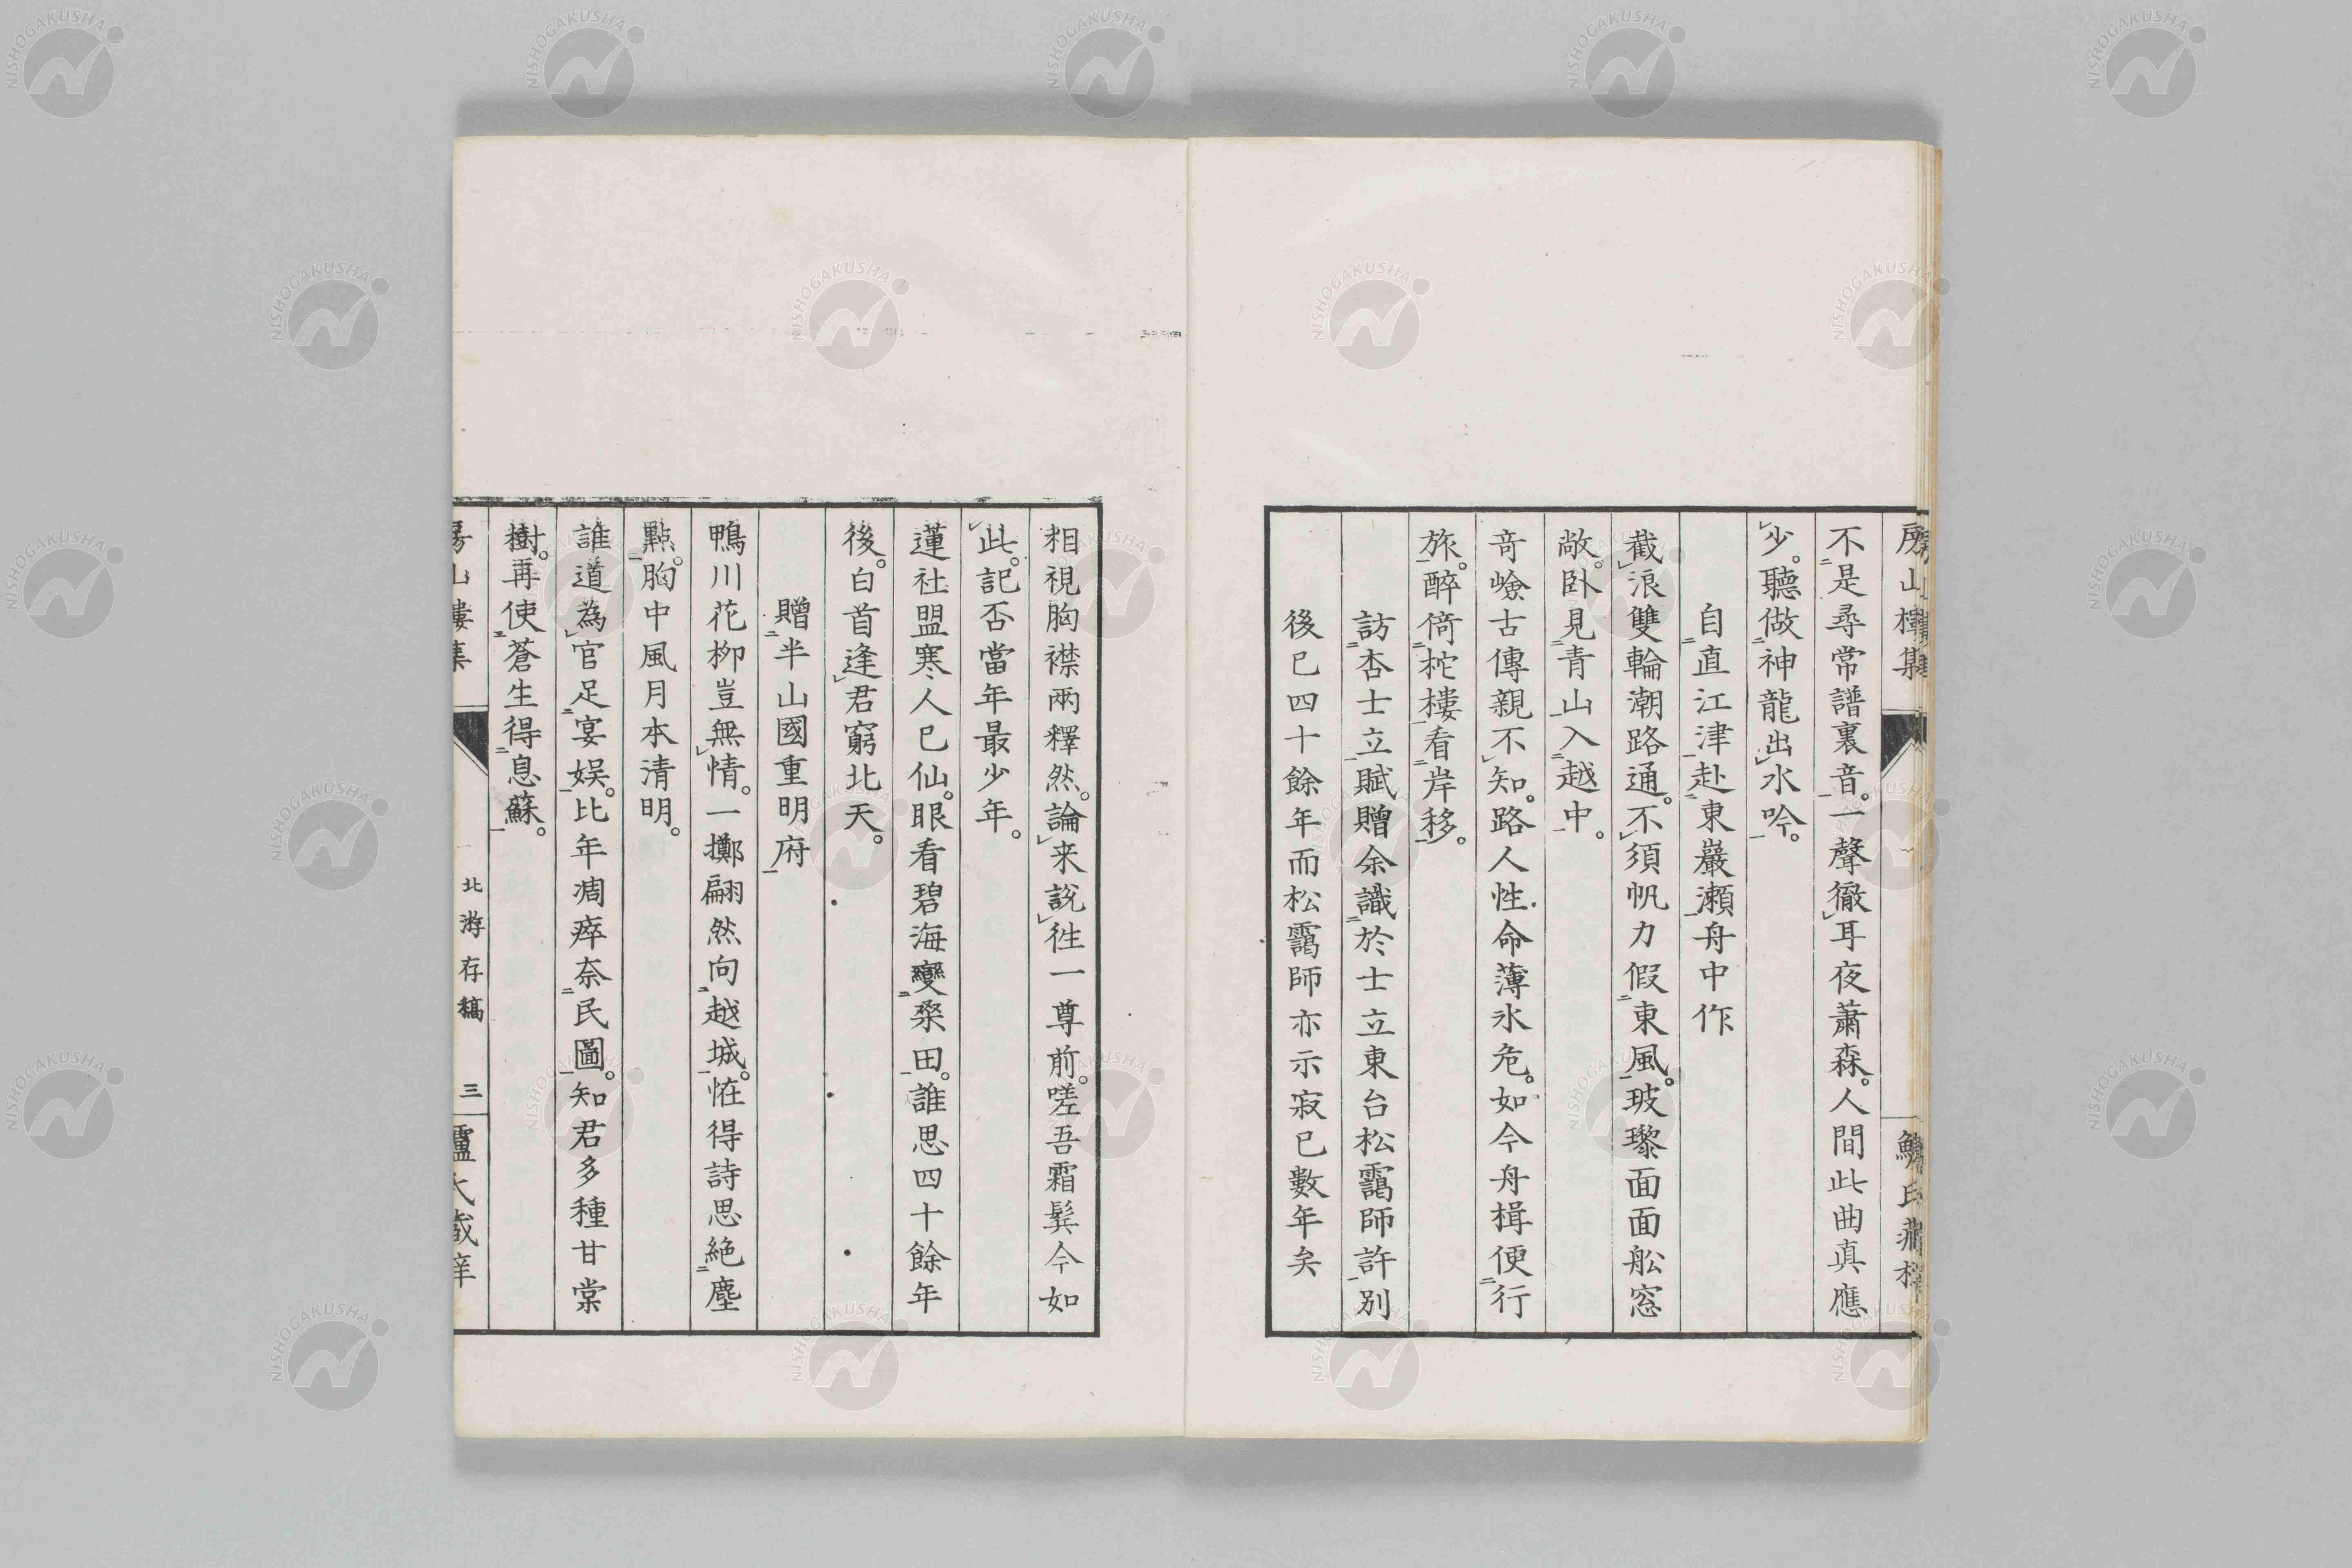 房山樓集
不是尋常譜裏音。一聲徹耳夜蕭森。人間此曲真應
少。聽做神龍出水吟。
自直江津赴東巖瀬舟中作
截浪雙輪潮路通。不須帆力假東風。玻瓈面面舩窓
敞。卧見青山入越中。
奇嶮古傳親不知。路人性命薄氷危。如今舟楫便行
旅。醉倚柁樓看岸移。
訪杏士立賦贈余識於士立東台松靄師許別
後已四十餘年而松靄師亦示寂已數年矣
相視胸襟兩釋然。論来說徃一尊前。嗟吾霜鬂今如
此。記否當年最少年。
蓮社盟寒人已仙。眼看碧海變桒田。誰思四十餘年
後。白首逢君窮北天。
贈半山國重明府
鴨川花柳豈無情。一擲翩然向越城。恠得詩思絶塵
點。胸中風月本清明。
誰道為官足宴娯。比年凋瘁奈民圖。知君多種甘棠
樹。再使蒼生得息蘇。
房山樓集
北游存稿
三
NISHOGAKUSHA